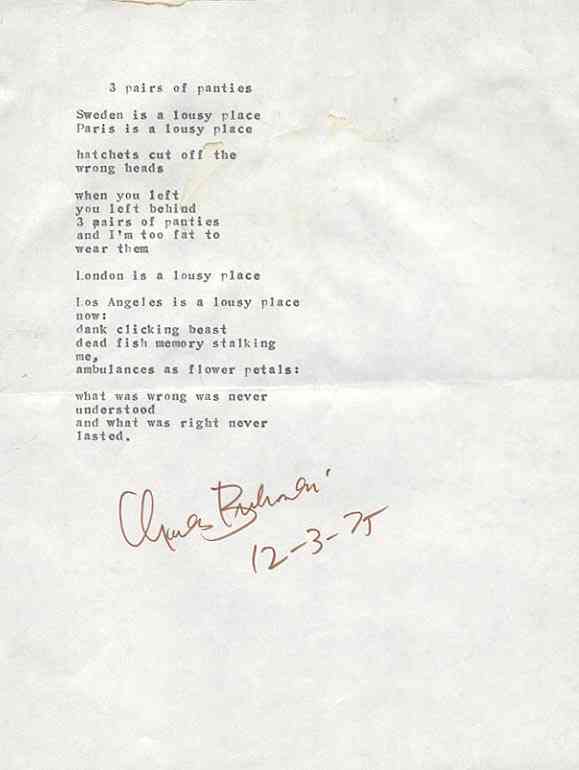 3 pairs of panties
Sweden is a lousy place
Paris is a lousy place
hatchets cut off the
wrong heads
when you left
you left behind
3 pairs of panties
and I'm too fat to
wear them
London is a lousy place
Los Angeles is a lousy place
now:
dank clicking beast
dead fish memory stalking
me,
ambulances as flower petals:
what was wrong was never
understood
and what was right never
lasted.
Charles Bukowski
12-3-75